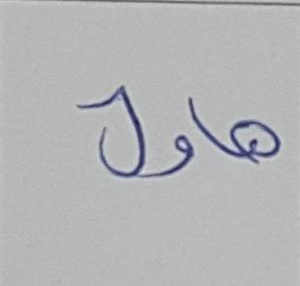 هاول